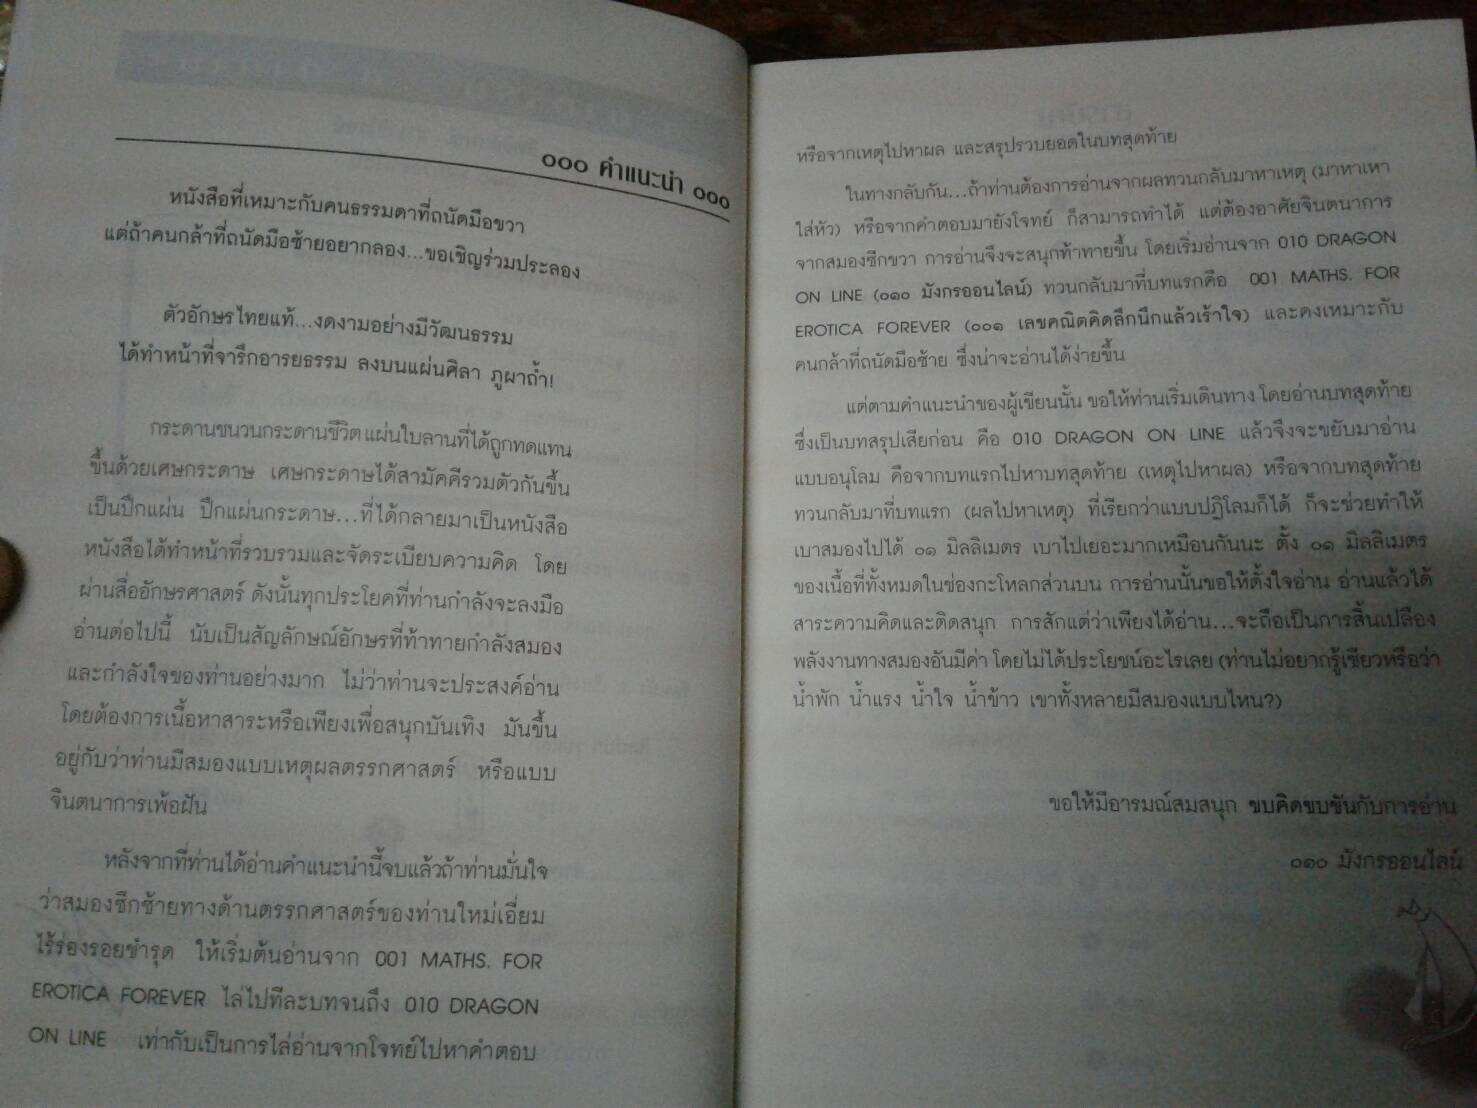 ๐๐๐ คำแนะนำ ๐๐๐
หนังสือที่เหมาะกับคนธรรมดาที่ถนัดมือขวา
แต่ถ้าคนกล้าที่ถนัดมือซ้ายอยากลอง...ขอเชิญร่วมประลอง
ตัวอักษรไทยแท้...งดงามอย่างมีวัฒนธรรม
ได้ทำหน้าที่จารึกอารยธรรม ลงบนแผ่นศิลา ภูผาถ้ำ!
กระดานชนวนกระดานชีวิต แผ่นใบลานที่ได้ถูกทดแทน
ขึ้นด้วยเศษกระดาษ เศษกระดาษได้สามัคคีรวมตัวกันขึ้น
เป็นปึกแผ่น ปึกแผ่นกระดาษ...ที่ได้กลายมาเป็นหนังสือ
หนังสือได้ทำหน้าที่รวบรวมและจัดระเบียบความคิด โดย
ผ่านสื่ออักษรศาสตร์ ดังนั้นทุกประโยคที่ท่านกำลังจะลงมือ
อ่านต่อไปนี้ นับเป็นสัญลักษณ์อักษรที่ท้าทายกำลังสมอง
และกำลังใจของท่านอย่างมาก ไม่ว่าท่านจะประสงค์อ่าน
โดยต้องการเนื้อหาสาระหรือเพียงเพื่อสนุกบันเทิง มันขึ้น
อยู่กับว่าท่านมีสมองแบบเหตุผลตรรกศาสตร์ หรือแบบ
จินตนาการเพ้อฝัน
หลังจากที่ท่านได้อ่านคำแนะนำนี้จบแล้วถ้าท่านมั่นใจ
ว่าสมองซีกซ้ายทางด้านตรรกศาสตร์ของท่านใหม่เอี่ยม
ไร้ร่องรอยชำรุด ให้เริ่มต้นอ่านจาก 001 MATHS. FOR
EROTICA FOREVER ไล่ไปทีละบทจนถึง 010 DRAGON
ON LINE เท่ากับเป็นการไล่อ่านจากโจทย์ไปหาคำตอบ
หรือจากเหตุไปหาผล และสรุปรวบยอดในบทสุดท้าย
ในทางกลับกัน...ถ้าท่านต้องการอ่านจากผลทวนกลับมาหาเหตุ (มาหาเหา
ใส่หัว) หรือจากคำตอบมายังโจทย์ ก็สามารถทำได้ แต่ต้องอาศัยจินตนาการ
จากสมองซีกขวา การอ่านจึงจะสนุกท้าทายขึ้น โดยเริ่มอ่านจาก 010 DRAGON
ON LINE (๐๑๐ มังกรออนไลน์) ทวนกลับมาที่บทแรกคือ 001 MATHS. FOR
EROTICA FOREVER (๐๐๑ เลขคณิตคิดลึกนึกแล้วเร้าใจ) และคงเหมาะกับ
คนกล้าที่ถนัดมือซ้าย ซึ่งน่าจะอ่านได้ง่ายขึ้น
แต่ตามคำแนะนำของผู้เขียนนั้น ขอให้ท่านเริ่มเดินทาง โดยอ่านบทสุดท้าย
ซึ่งเป็นบทสรุปเสียก่อน คือ 010 DRAGON ON LINE แล้วจึงจะขยับมาอ่าน
แบบอนุโลม คือจากบทแรกไปหาบทสุดท้าย (เหตุไปหาผล) หรือจากบทสุดท้าย
ทวนกลับมาที่บทแรก (ผลไปหาเหตุ) ที่เรียกว่าแบบปฏิโลมก็ได้ ก็จะช่วยทำให้
เบาสมองไปได้ ๐๑ มิลลิเมตร เบาไปเยอะมากเหมือนกันนะ ตั้ง ๐๑ มิลลิเมตร
ของเนื้อที่ทั้งหมดในช่องกะโหลกส่วนบน การอ่านนั้นขอให้ตั้งใจอ่าน อ่านแล้วได้
สาระความคิดและติดสนุก การสักแต่ว่าเพียงได้อ่าน...จะถือเป็นการสิ้นเปลือง
พลังงานทางสมองอันมีค่า โดยไม่ได้ประโยชน์อะไรเลย (ท่านไม่อยากรู้เชียวหรือว่า
น้ำพัก น้ำแรง น้ำใจ น้ำข้าว เขาทั้งหลายมีสมองแบบไหน?)
ขอให้มีอารมณ์สมสนุก ขบคิดขบขันกับการอ่าน
๐๑๐ มังกรออนไลน์